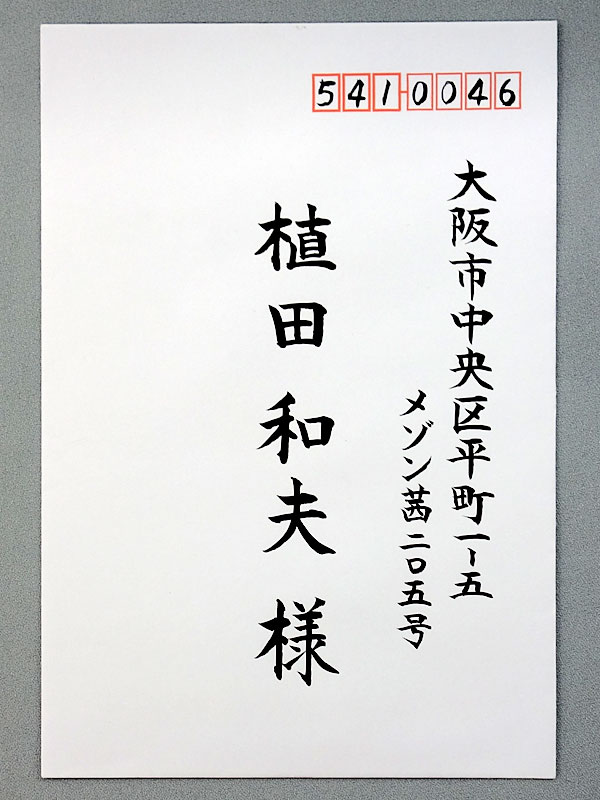 541-0046
大阪市中央区平町一-五
メゾン茜二〇五号
植田和夫様